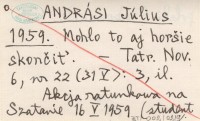 ANDRÁSI Július
1959. Mohlo to aj horšie
skončiť. – Tatr. Nov.
6, nr 22 (31 V): 3, il.
Akcja ratunkowa na
Szatanie 16 V 1959 (student